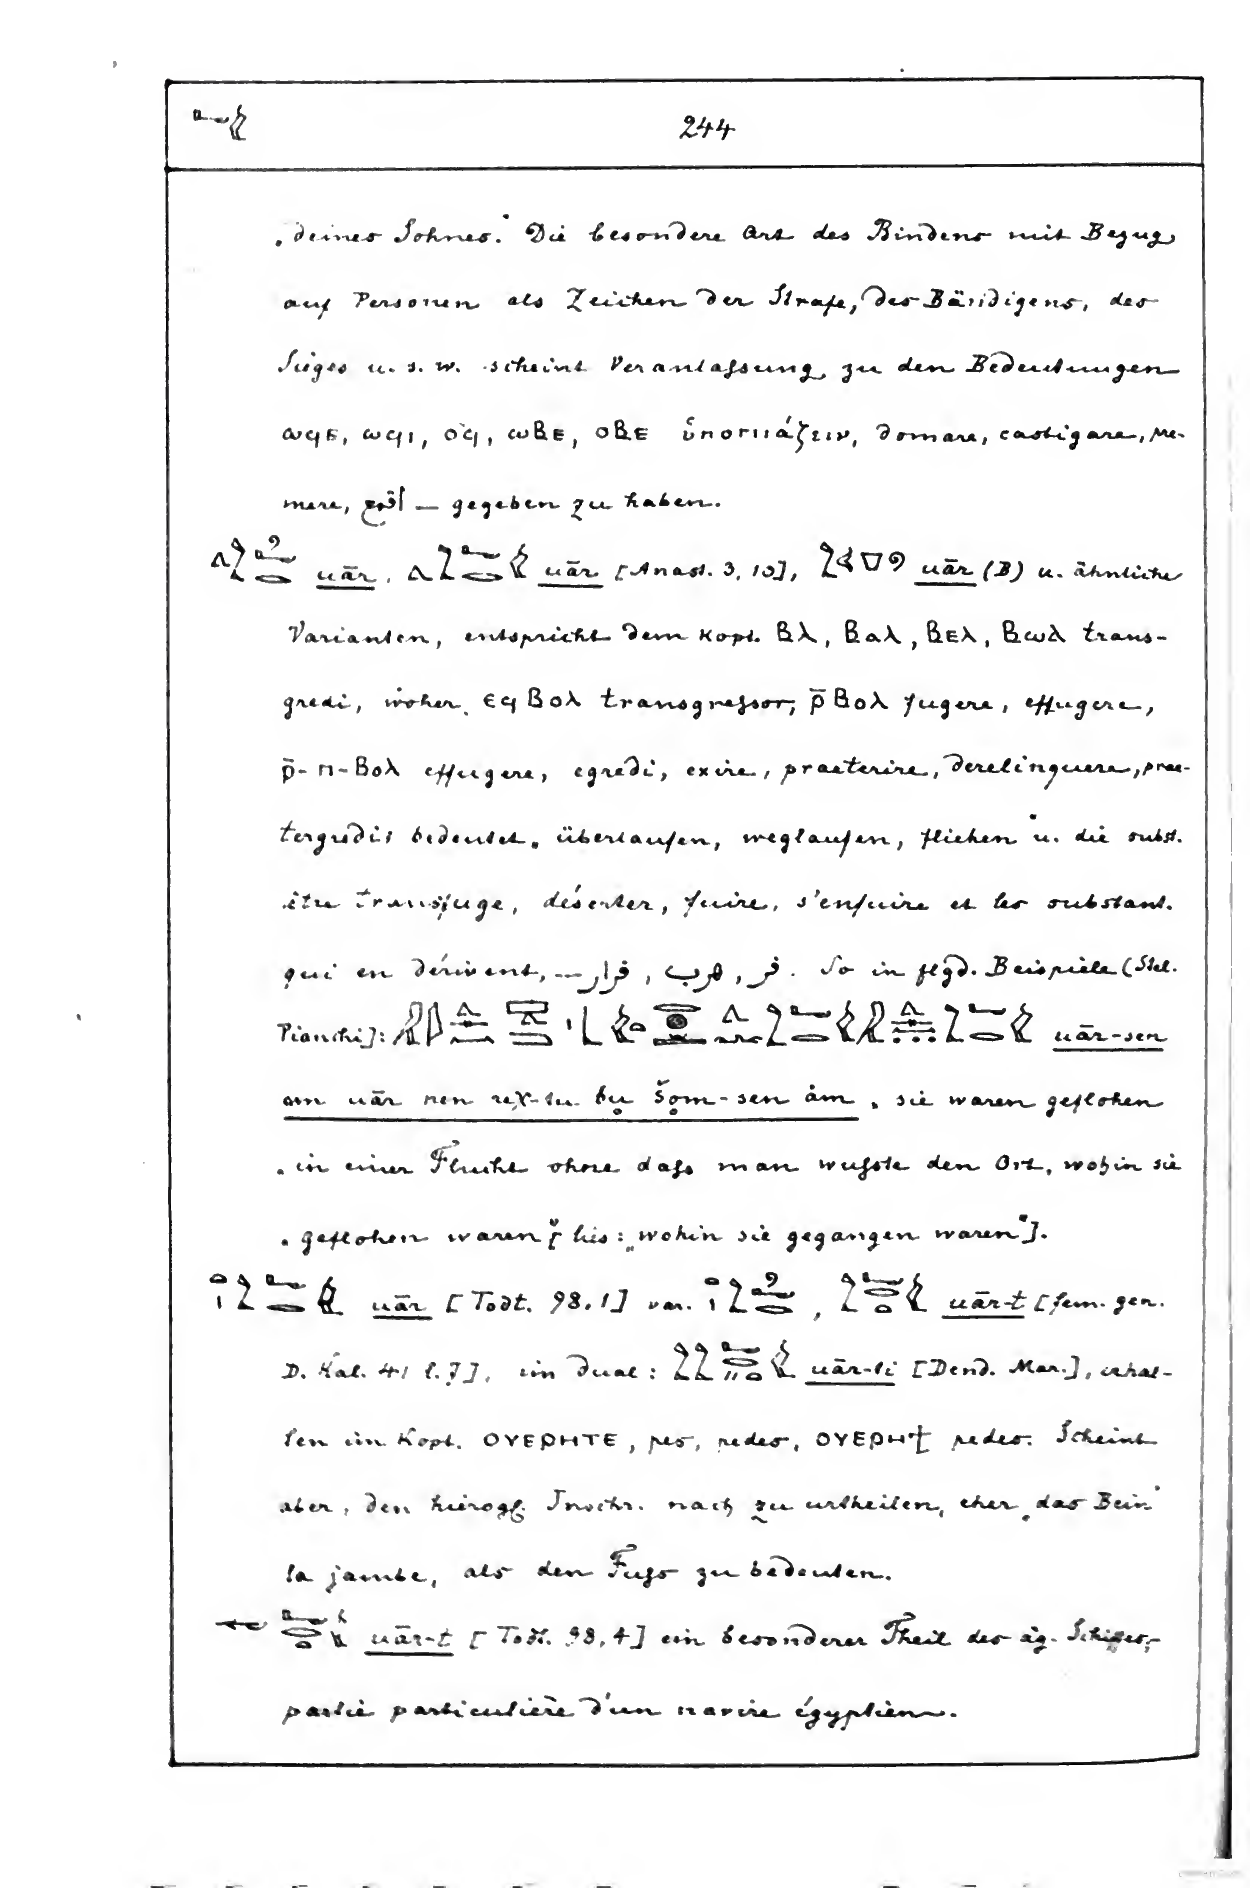 244
„deines Sohnes." Die besondere Art des Bindens mit Bezug
auf Personen als Zeichen der Strafe, des Bändigens, des
Sieges u. s. w. scheint Veranlassung zu den Bedeutungen
ωϥⲉ, ωϥⲓ, ⲟϥ, ωⲃⲉ, ⲟⲃⲉ ὑποπιάζειν, domare, castigare, pre-
mere, — gegeben zu haben.
uār, uār [Anast. 3, 13], uār (B) u. ähnliche
Varianten, entspricht dem Kopt. ⲃⲗ, ⲃⲁⲗ, ⲃⲉⲗ, ⲃⲱⲗ trans-
gredi, woher ⲉϥⲃⲟⲗ transgressor, ⲣ̄ ⲃⲟⲗ fugere, effugere,
ⲣ̄-ⲡ-ⲃⲟⲗ effugere, egredi, exire, praeterire, derelinquere, prae-
tergredi; bedeutet „überlaufen, weglaufen, fliehen" u. die subst.
être transfuge, déserter, fuire, s'enfuire et les substant.
qui en dérivent, — فرار, هرب, فر. So in flgd. Beispiele (Stel.
Pianchi]: uār-sen
am uār nen rex-tu bu šom-sen åm „sie waren geflohen
„in einer Flucht ohne dass man wusste den Ort, wohin sie
„geflohen waren" [lies: „wohin sie gegangen waren"].
uār [Todt. 98, 1] var. , uār-t [fem. gen.
D. Kal. 41 l. 7], im dual: uār-ti [Dend. Mar.], erhal-
ten im Kopt. ⲟⲩⲉⲣⲏⲧⲉ, pes, pedes, ⲟⲩⲉⲣⲏϯ pedes. Scheint
aber, den hierogl. Inschr. nach zu urtheilen, eher „das Bein"
la jambe, als den Fuss zu bedeuten.
uār-t [Todt. 98, 4] ein besonderer Theil des äg. Schiffes,
partie particulière d'un navire égyptien.